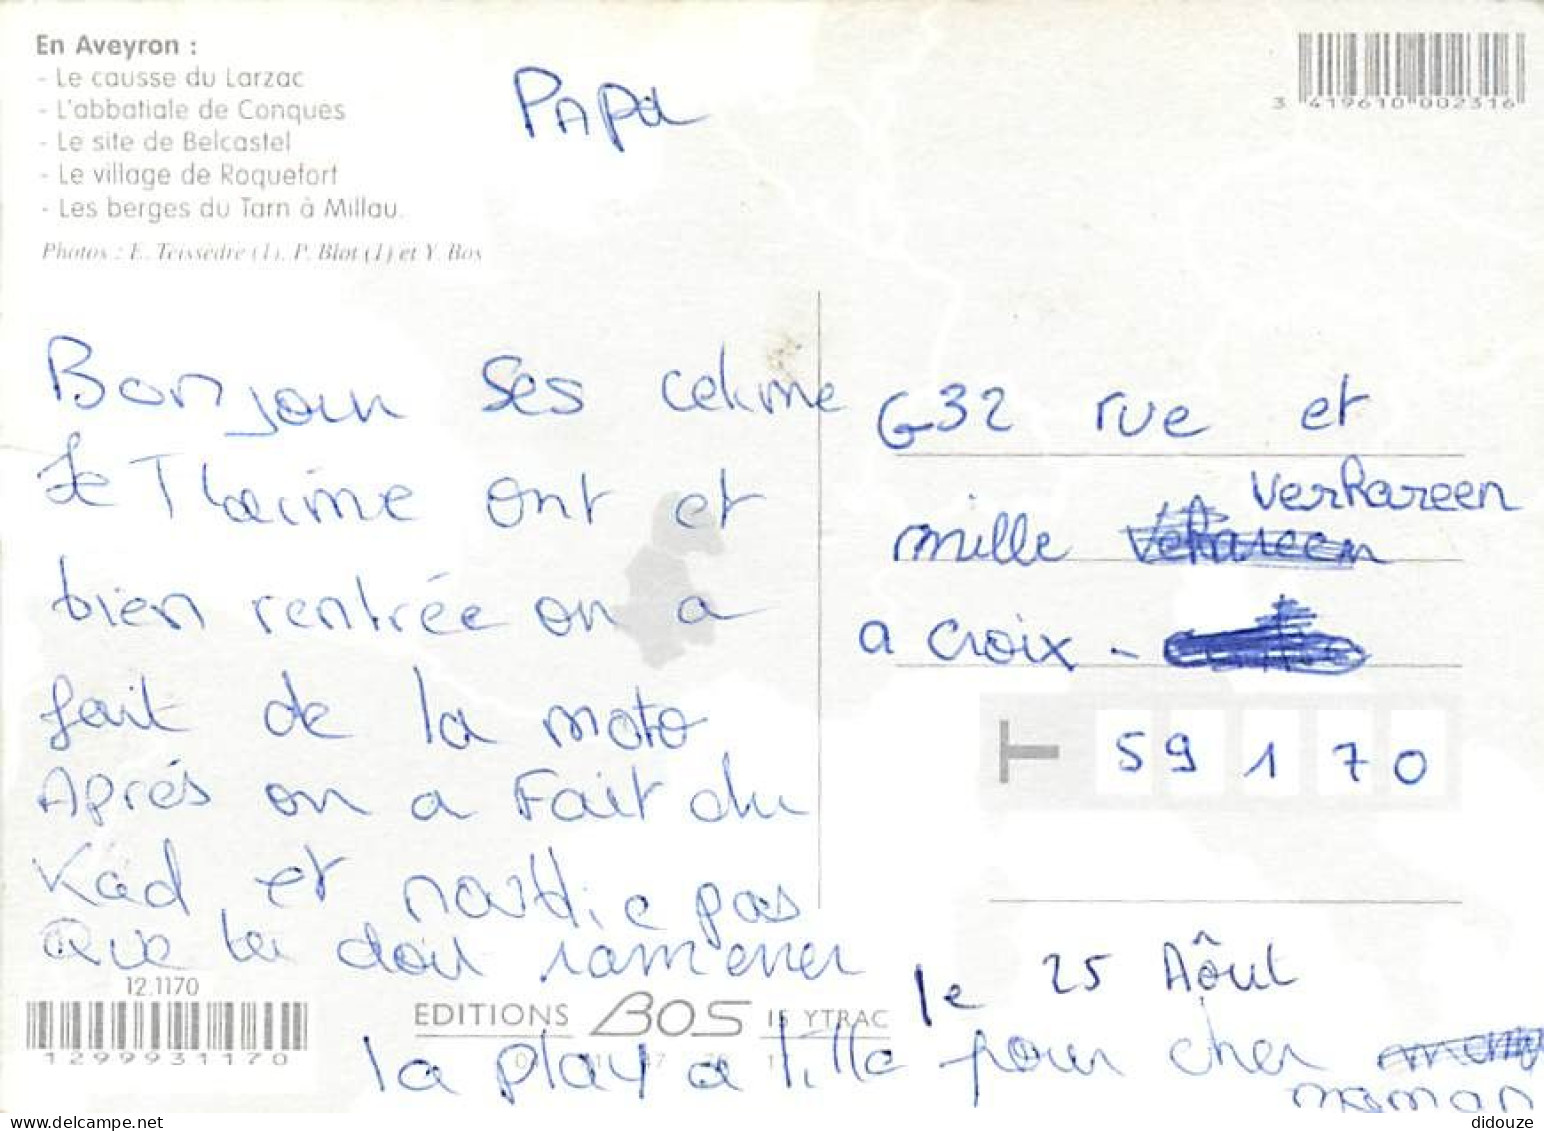 En Aveyron :
- Le causse du Larzac
- L'abbatiale de Conques
- Le site de Belcastel
- Le village de Roquefort
- Les berges du Tarn à Millau.
Photos : E. Teissèdre (1), P. Blot (1) et Y. Bos
3 419610 002316
PAPA
Bonjour ses celine
Je Thaime ont et
bien rentrée on a
fait de la moto
Après on a Fait du
Kad et pas
Que tu doit ramener
la play a lille pour cher
maman
G32 rue et
mille verhareen
a croix -
59170
le 25 Aôut
12.1170
1299931170
EDITIONS BOS 15 YTRAC
didouze